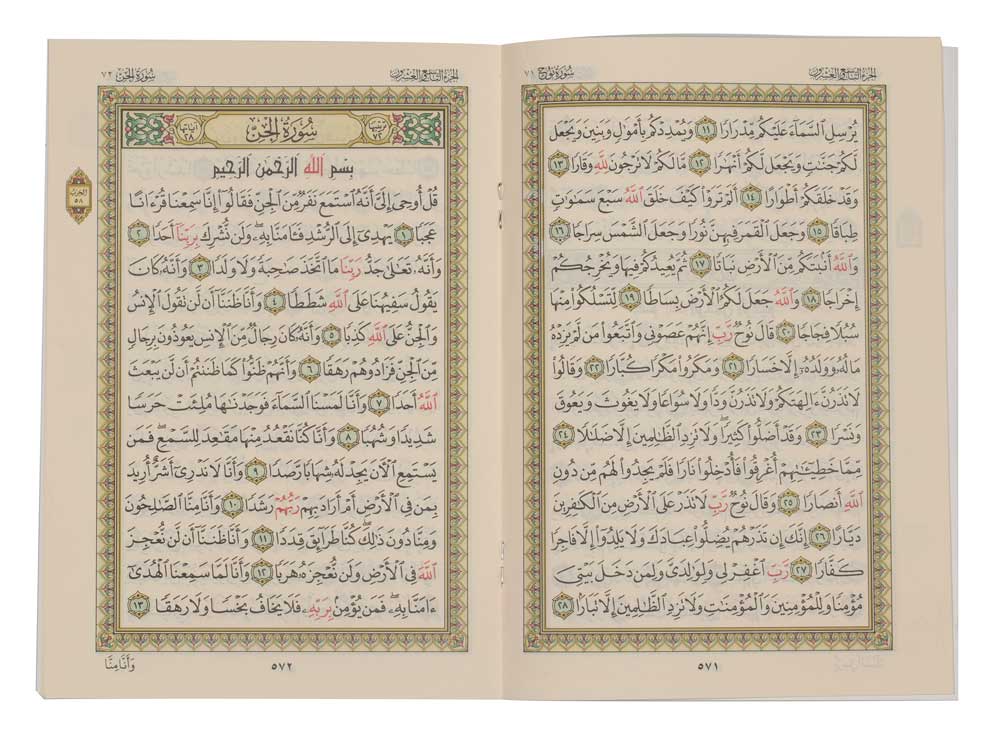 الجزء التاسع والعشرون
سورة نوح ٧١
يُرْسِلِ ٱلسَّمَآءَ عَلَيْكُم مِّدْرَارًا ١١ وَيُمْدِدْكُم بِأَمْوَٰلٍ وَبَنِينَ وَيَجْعَل
لَّكُمْ جَنَّٰتٍ وَيَجْعَل لَّكُمْ أَنْهَٰرًا ١٢ مَّا لَكُمْ لَا تَرْجُونَ لِلَّهِ وَقَارًا ١٣
وَقَدْ خَلَقَكُمْ أَطْوَارًا ١٤ أَلَمْ تَرَوْا۟ كَيْفَ خَلَقَ ٱللَّهُ سَبْعَ سَمَٰوَٰتٍ
طِبَاقًا ١٥ وَجَعَلَ ٱلْقَمَرَ فِيهِنَّ نُورًا وَجَعَلَ ٱلشَّمْسَ سِرَاجًا ١٦
وَٱللَّهُ أَنۢبَتَكُم مِّنَ ٱلْأَرْضِ نَبَاتًا ١٧ ثُمَّ يُعِيدُكُمْ فِيهَا وَيُخْرِجُكُمْ
إِخْرَاجًا ١٨ وَٱللَّهُ جَعَلَ لَكُمُ ٱلْأَرْضَ بِسَاطًا ١٩ لِّتَسْلُكُوا۟ مِنْهَا
سُبُلًا فِجَاجًا ٢٠ قَالَ نُوحٌ رَّبِّ إِنَّهُمْ عَصَوْنِى وَٱتَّبَعُوا۟ مَن لَّمْ يَزِدْهُ
مَالُهُۥ وَوَلَدُهُۥٓ إِلَّا خَسَارًا ٢١ وَمَكَرُوا۟ مَكْرًا كُبَّارًا ٢٢ وَقَالُوا۟
لَا تَذَرُنَّ ءَالِهَتَكُمْ وَلَا تَذَرُنَّ وَدًّا وَلَا سُوَاعًا وَلَا يَغُوثَ وَيَعُوقَ
وَنَسْرًا ٢٣ وَقَدْ أَضَلُّوا۟ كَثِيرًا ۖ وَلَا تَزِدِ ٱلظَّٰلِمِينَ إِلَّا ضَلَٰلًا ٢٤
مِّمَّا خَطِيٓـَٰٔتِهِمْ أُغْرِقُوا۟ فَأُدْخِلُوا۟ نَارًا فَلَمْ يَجِدُوا۟ لَهُم مِّن دُونِ
ٱللَّهِ أَنصَارًا ٢٥ وَقَالَ نُوحٌ رَّبِّ لَا تَذَرْ عَلَى ٱلْأَرْضِ مِنَ ٱلْكَٰفِرِينَ
دَيَّارًا ٢٦ إِنَّكَ إِن تَذَرْهُمْ يُضِلُّوا۟ عِبَادَكَ وَلَا يَلِدُوٓا۟ إِلَّا فَاجِرًا
كَفَّارًا ٢٧ رَّبِّ ٱغْفِرْ لِى وَلِوَٰلِدَىَّ وَلِمَن دَخَلَ بَيْتِىَ
مُؤْمِنًا وَلِلْمُؤْمِنِينَ وَٱلْمُؤْمِنَٰتِ وَلَا تَزِدِ ٱلظَّٰلِمِينَ إِلَّا تَبَارًۢا ٢٨
٥٧١
الجزء التاسع والعشرون
سورة الجن ٧٢
ترتيبها ٧٢
سُورَةُ الجِنّ
آياتها ٢٨
بِسْمِ ٱللَّهِ ٱلرَّحْمَٰنِ ٱلرَّحِيمِ
الحزب ٥٨
قُلْ أُوحِىَ إِلَىَّ أَنَّهُ ٱسْتَمَعَ نَفَرٌ مِّنَ ٱلْجِنِّ فَقَالُوٓا۟ إِنَّا سَمِعْنَا قُرْءَانًا
عَجَبًا ١ يَهْدِىٓ إِلَى ٱلرُّشْدِ فَـَٔامَنَّا بِهِۦ ۖ وَلَن نُّشْرِكَ بِرَبِّنَآ أَحَدًا ٢
وَأَنَّهُۥ تَعَٰلَىٰ جَدُّ رَبِّنَا مَا ٱتَّخَذَ صَٰحِبَةً وَلَا وَلَدًا ٣ وَأَنَّهُۥ كَانَ
يَقُولُ سَفِيهُنَا عَلَى ٱللَّهِ شَطَطًا ٤ وَأَنَّا ظَنَنَّآ أَن لَّن تَقُولَ ٱلْإِنسُ
وَٱلْجِنُّ عَلَى ٱللَّهِ كَذِبًا ٥ وَأَنَّهُۥ كَانَ رِجَالٌ مِّنَ ٱلْإِنسِ يَعُوذُونَ بِرِجَالٍ
مِّنَ ٱلْجِنِّ فَزَادُوهُمْ رَهَقًا ٦ وَأَنَّهُمْ ظَنُّوا۟ كَمَا ظَنَنتُمْ أَن لَّن يَبْعَثَ
ٱللَّهُ أَحَدًا ٧ وَأَنَّا لَمَسْنَا ٱلسَّمَآءَ فَوَجَدْنَٰهَا مُلِئَتْ حَرَسًا
شَدِيدًا وَشُهُبًا ٨ وَأَنَّا كُنَّا نَقْعُدُ مِنْهَا مَقَٰعِدَ لِلسَّمْعِ ۖ فَمَن
يَسْتَمِعِ ٱلْـَٔانَ يَجِدْ لَهُۥ شِهَابًا رَّصَدًا ٩ وَأَنَّا لَا نَدْرِىٓ أَشَرٌّ أُرِيدَ
بِمَن فِى ٱلْأَرْضِ أَمْ أَرَادَ بِهِمْ رَبُّهُمْ رَشَدًا ١٠ وَأَنَّا مِنَّا ٱلصَّٰلِحُونَ
وَمِنَّا دُونَ ذَٰلِكَ ۖ كُنَّا طَرَآئِقَ قِدَدًا ١١ وَأَنَّا ظَنَنَّآ أَن لَّن نُّعْجِزَ
ٱللَّهَ فِى ٱلْأَرْضِ وَلَن نُّعْجِزَهُۥ هَرَبًا ١٢ وَأَنَّا لَمَّا سَمِعْنَا ٱلْهُدَىٰٓ
ءَامَنَّا بِهِۦ ۖ فَمَن يُؤْمِنۢ بِرَبِّهِۦ فَلَا يَخَافُ بَخْسًا وَلَا رَهَقًا ١٣
٥٧٢
وَأَنَّا مِنَّا